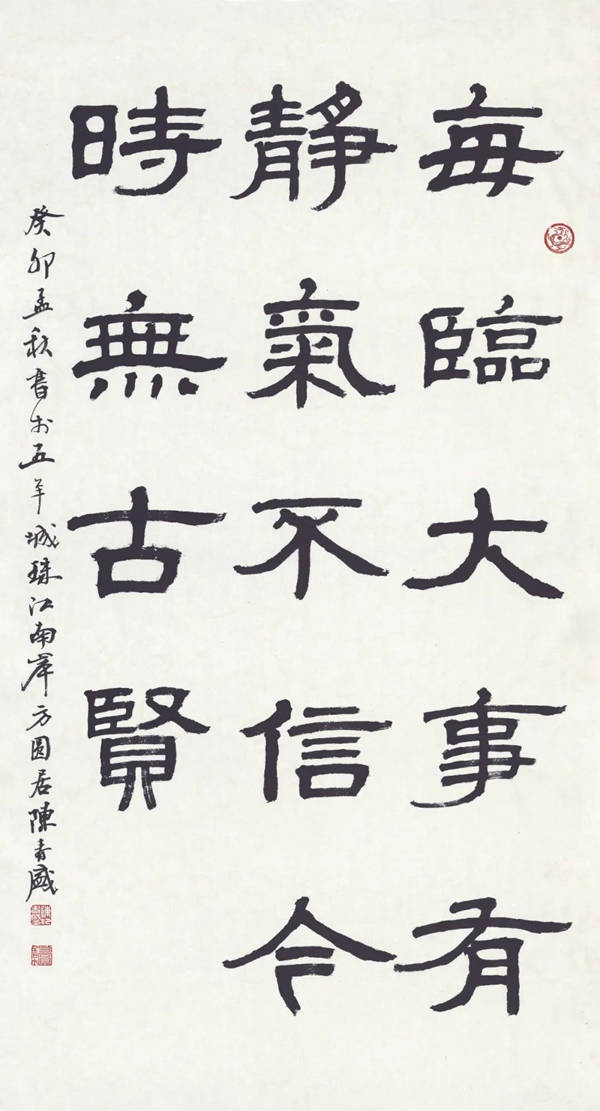 每臨大事有
靜氣不信今
時無古賢
癸卯孟秋書於五羊城珠江南岸方圓居陳青盛